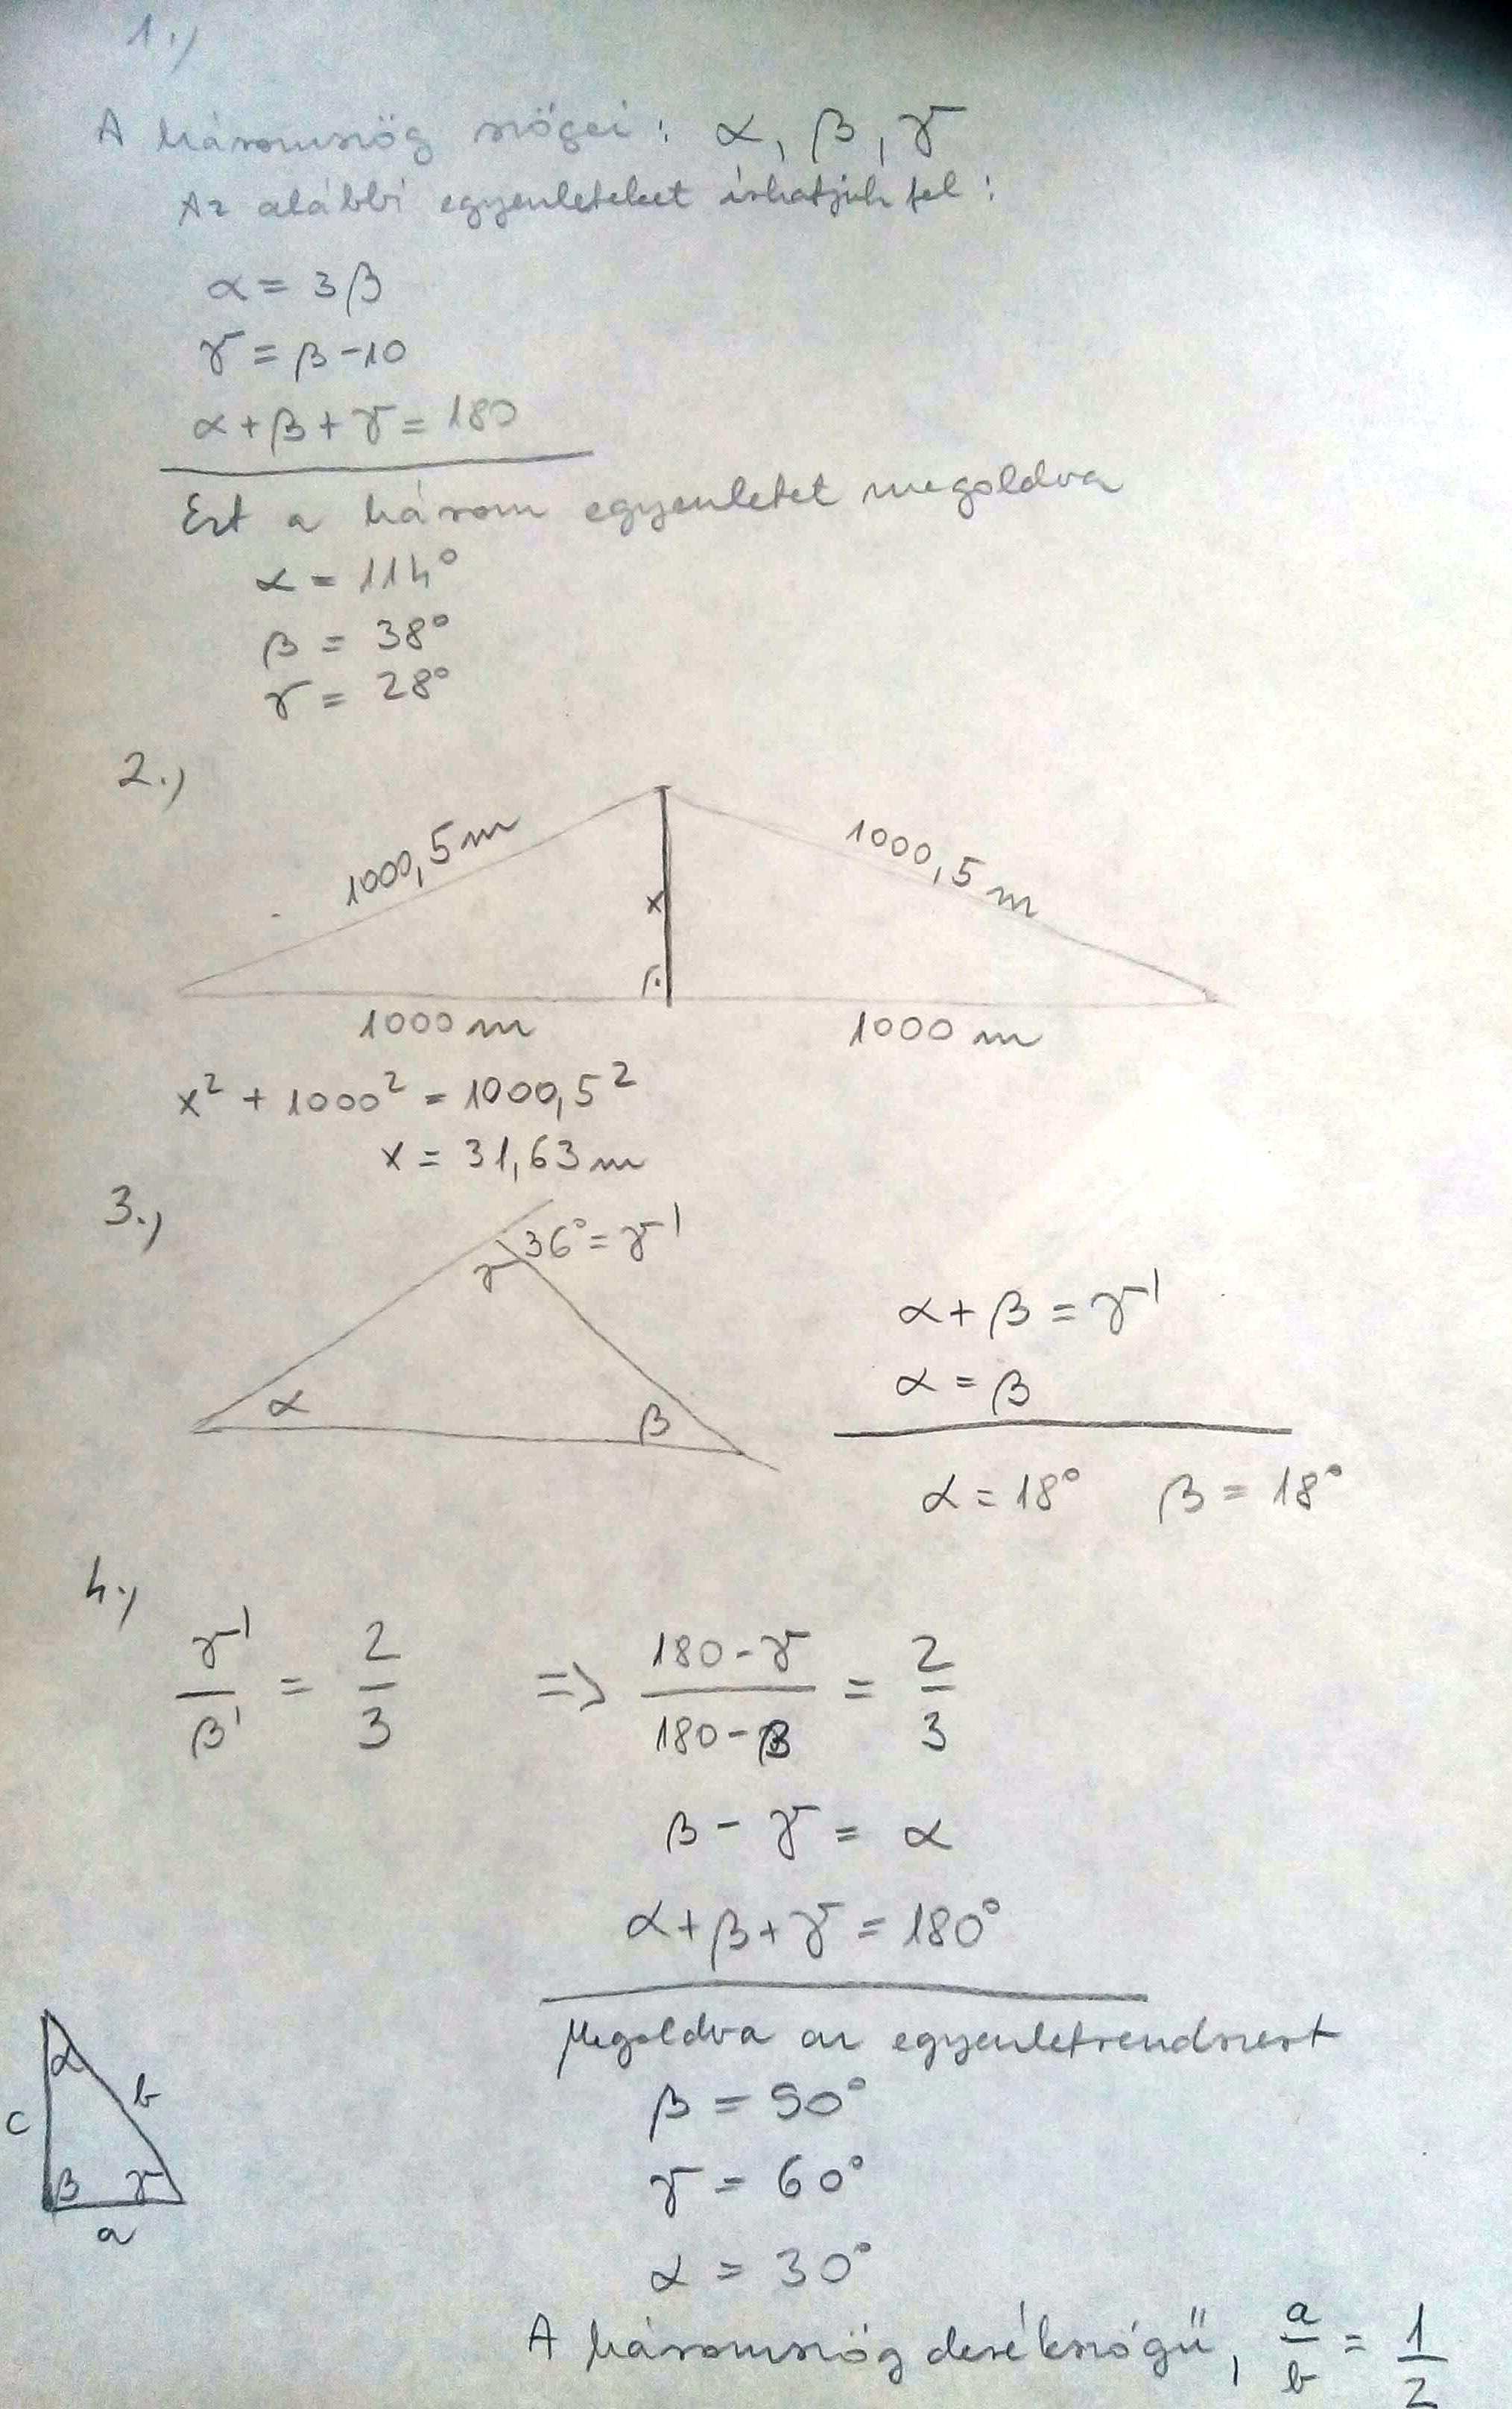 1.)
A háromszög szögei: α, β, γ
Az alábbi egyenleteket írhatjuk fel:
α = 3β
γ = β - 10
α + β + γ = 180
Ezt a három egyenletet megoldva
α = 114°
β = 38°
γ = 28°
2.)
1000,5 m
1000,5 m
x
1000 m
1000 m
x² + 1000² = 1000,5²
x = 31,63 m
3.)
36° = γ'
γ
α
β
α + β = γ'
α = β
α = 18° β = 18°
4.)
γ'/β' = 2/3 => (180 - γ)/(180 - β) = 2/3
β - γ = α
α + β + γ = 180°
Megoldva az egyenletrendszert
β = 90°
γ = 60°
α = 30°
α
b
c
β
γ
a
A háromszög derékszögű, a/b = 1/2